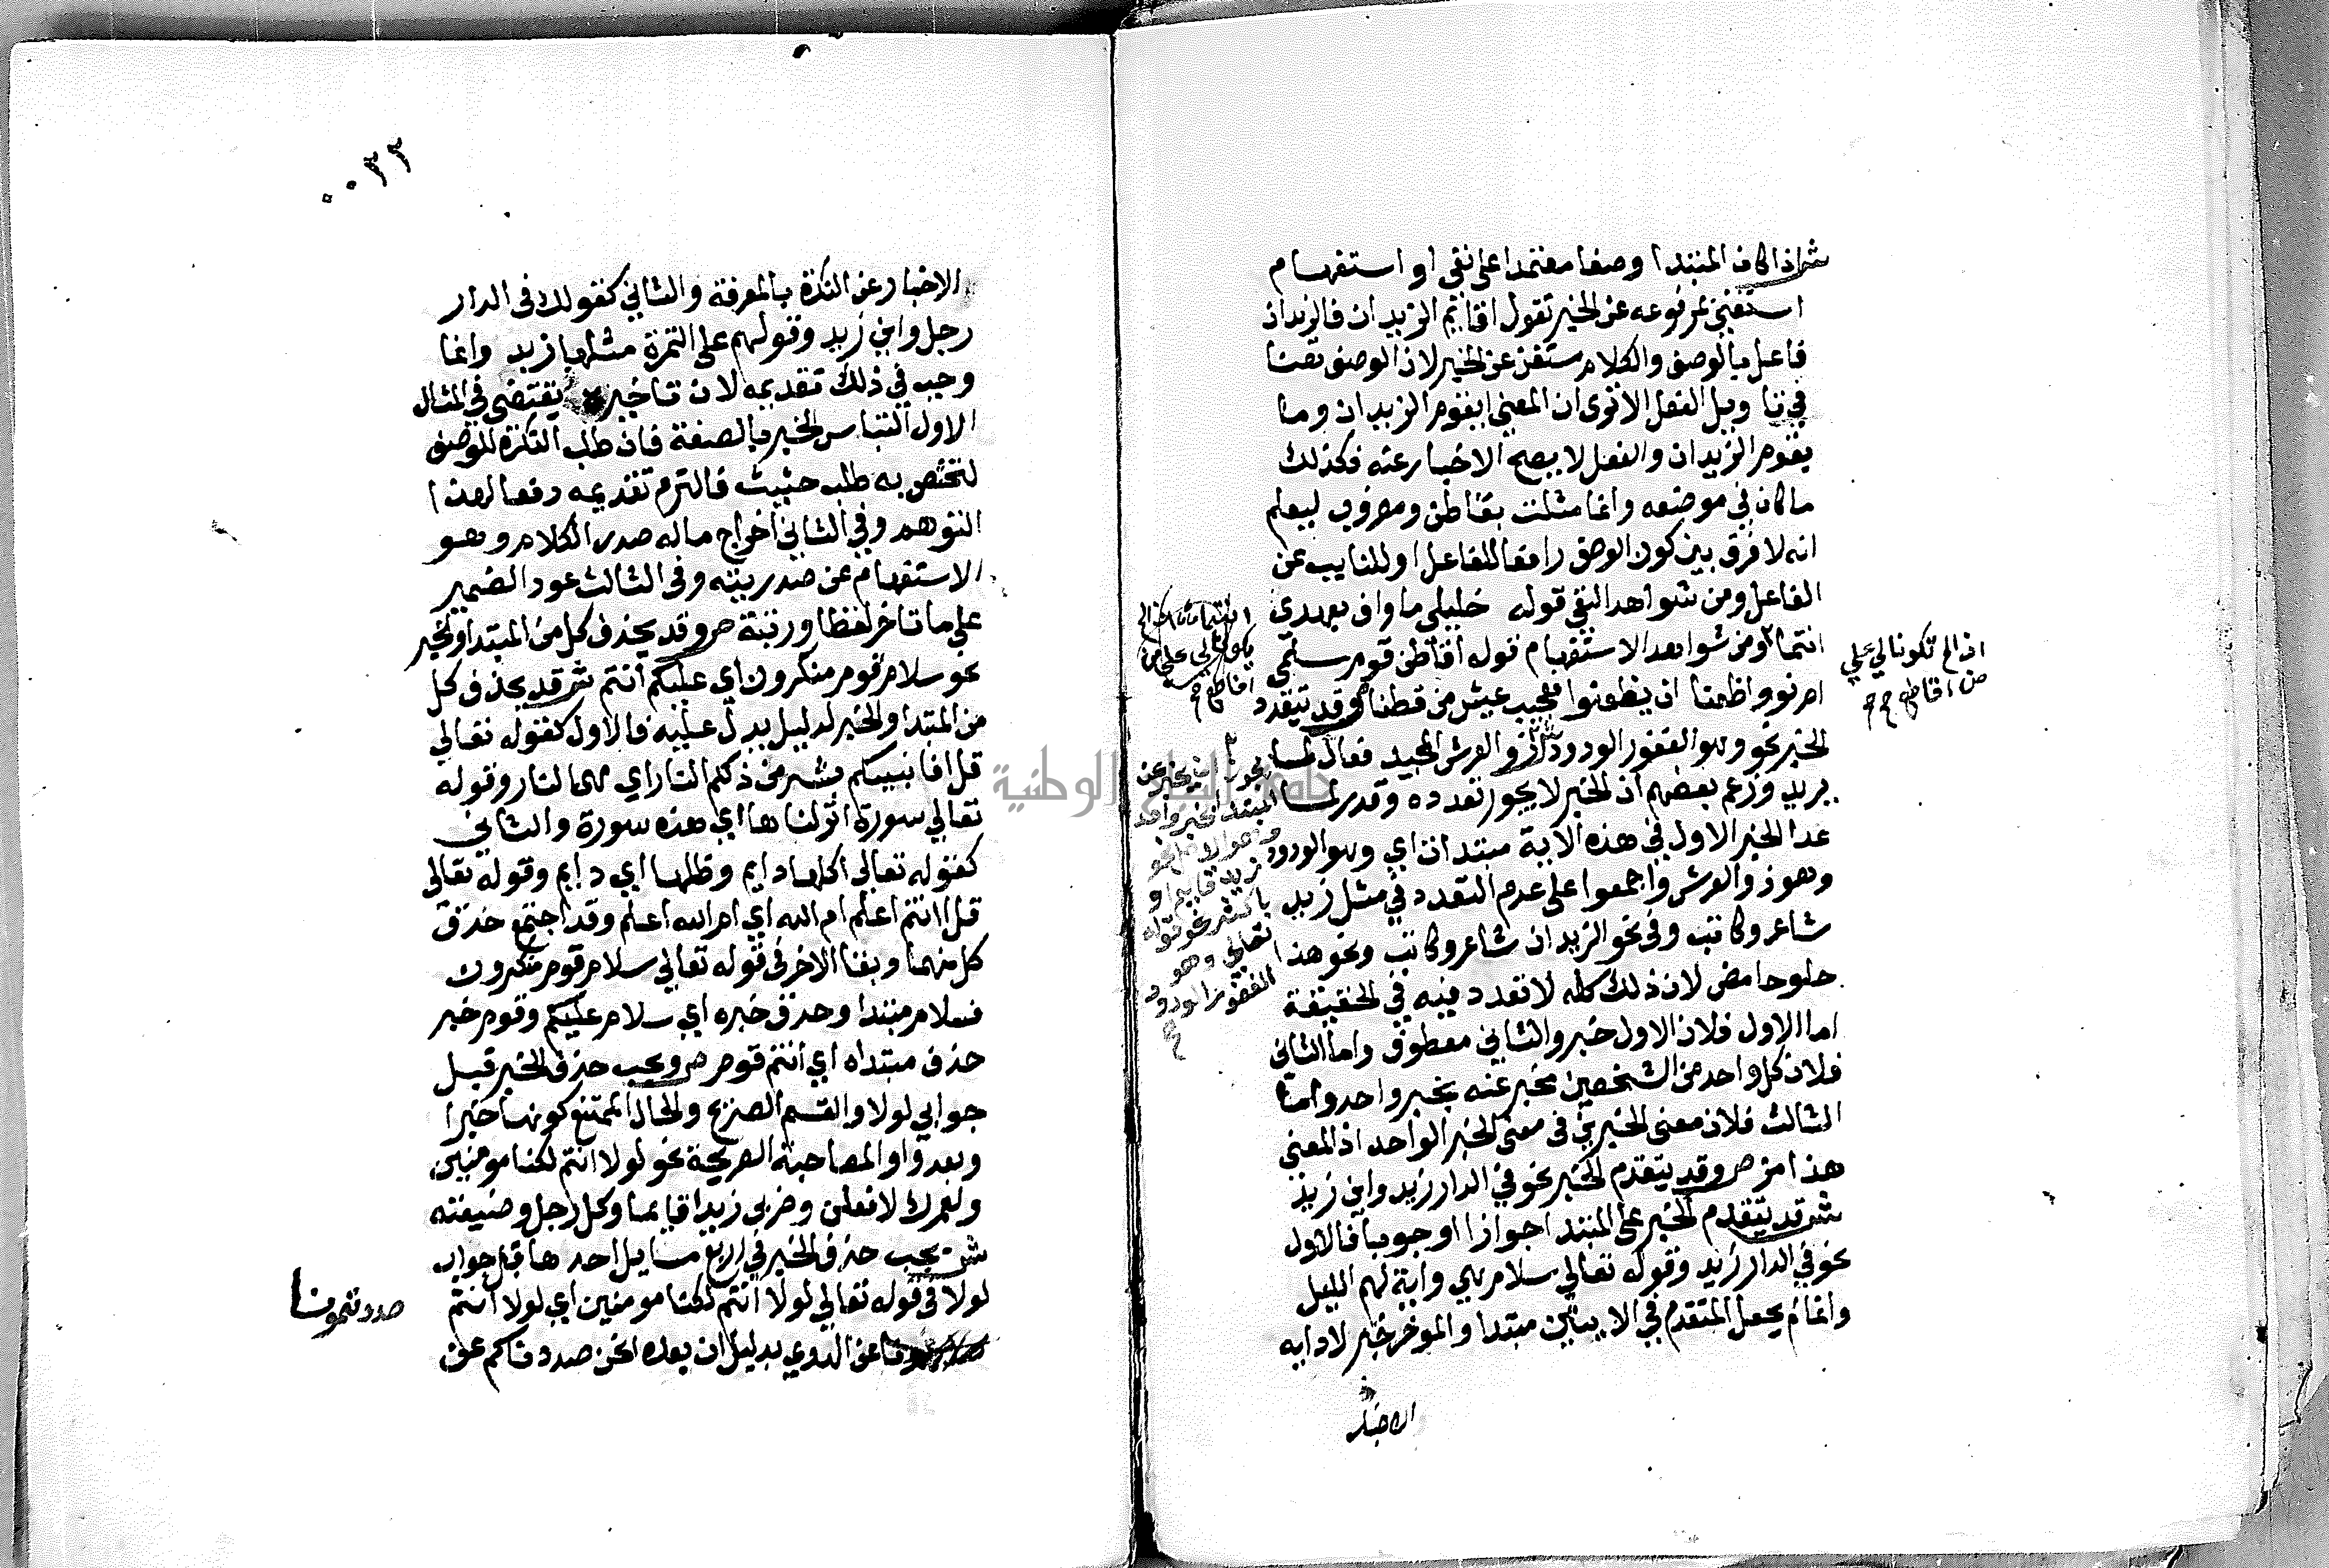 ش اذا كان المبتدا وصفا معتمدا على نفي او استفهام
استغنى بمرفوعه عن الخبر تقول اقايم الزيدان فالزيدان
فاعل بالوصف والكلام مستغن عن الخبر لان الوصف هنا
في تاويل الفعل الا ترى ان المعنى ايقوم الزيدان وما
يقوم الزيدان والفعل لا يصح الاخبار عنه فكذلك
ما كان في موضعه وانما مثلت بقاطن ومضروب ليعلم
انه لا فرق بين كون الوصف رافعا للفاعل او للنايب عن
الفاعل ومن شواهد النفي قوله خليلي ما واف بعهدي
انتما ومن شواهد الاستفهام قوله أقاطن قوم سلمى
ام نووا ظعنا ان يظعنوا فعجيب عيش من قطنا ص وقد يتعدد
الخبر نحو وهو الغفور الودود ش ذو العرش المجيد فعال لما
يريد وزعم بعضهم ان الخبر لا يجوز تعدده وقدر لما
عدا الخبر الاول في هذه الاية مبتدات اي وهو الودود
وهو ذو العرش واجمعوا على عدم التعدد في مثل زيد
شاعر وكاتب وفي نحو الزيدان شاعر وكاتب ونحو هذا
حلو حامض لان ذلك كله لا تعدد فيه في الحقيقة
اما الاول فلان الاول خبر والثاني معطوف واما الثاني
فلان كل واحد من الشخصين مخبر عنه بخبر واحد واما
الثالث فلان معنى الخبرين في معنى الخبر الواحد اذ المعنى
هذا مز ص وقد يتقدم الخبر نحو في الدار زيد واين زيد
ش قد يتقدم الخبر على المبتدا جوازا او وجوبا فالاول
نحو في الدار زيد وقوله تعالى سلام هي واية لهم الليل
وانما لم يجعل المتقدم في الايتين مبتدا والموخر خبر لادايه
الاخبار
اذا لم تكونا لي على
من اقاطع
يجوز ان يخبر عن
المبتدا بخبر واحد
وهو الاصل نحو
زيد قايم او
باكثر نحو قوله
تعالى وهو
الغفور الودود
٠٠٣٢
الاخبار عن النكرة بالمعرفة والثاني كقولك في الدار
رجل واين زيد وقولهم على التمرة مثلها زبد وانما
وجب في ذلك تقديمه لان تاخيره يقتضي في المثال
الاول التباس الخبر بالصفة فان طلب النكرة للوصف
لتختص به طلب حثيث فالتزم تقديمه دفعا لهذا
التوهم وفي الثاني اخراج ماله صدر الكلام وهو
الاستفهام عن صدريته وفي الثالث عود الضمير
على متاخر لفظا ورتبة ص وقد يحذف كل من المبتدا والخبر
نحو سلام قوم منكرون اي عليكم انتم ش قد يحذف كل
من المبتدا والخبر لدليل يدل عليه فالاول كقوله تعالى
قل افانبيكم بشر من ذلكم النار اي هي النار وقوله
تعالى سورة انزلناها اي هذه سورة والثاني
كقوله تعالى اكلها دايم وظلها اي دايم وقوله تعالى
قل اانتم اعلم ام الله اي ام الله اعلم وقد اجتمع حذف
كل منهما وبقا الاخر في قوله تعالى سلام قوم منكرون
فسلام مبتدا وحذف خبره اي سلام عليكم وقوم خبر
حذف مبتداه اي انتم قوم ص ويجب حذف الخبر قبل
جوابي لولا والقسم الصريح والحال الممتنع كونها خبرا
وبعد واو المصاحبة الصريحة نحو لولا انتم لكنا مومنين
ولعمرك لافعلن وضربي زيدا قايما وكل رجل وضيعته
ش يجب حذف الخبر في اربع مسايل احدها قبل جواب
لولا في قوله تعالى لولا انتم لكنا مومنين اي لولا انتم
صددتمونا
عن الهدى بدليل ان بعده انحن صددناكم عن